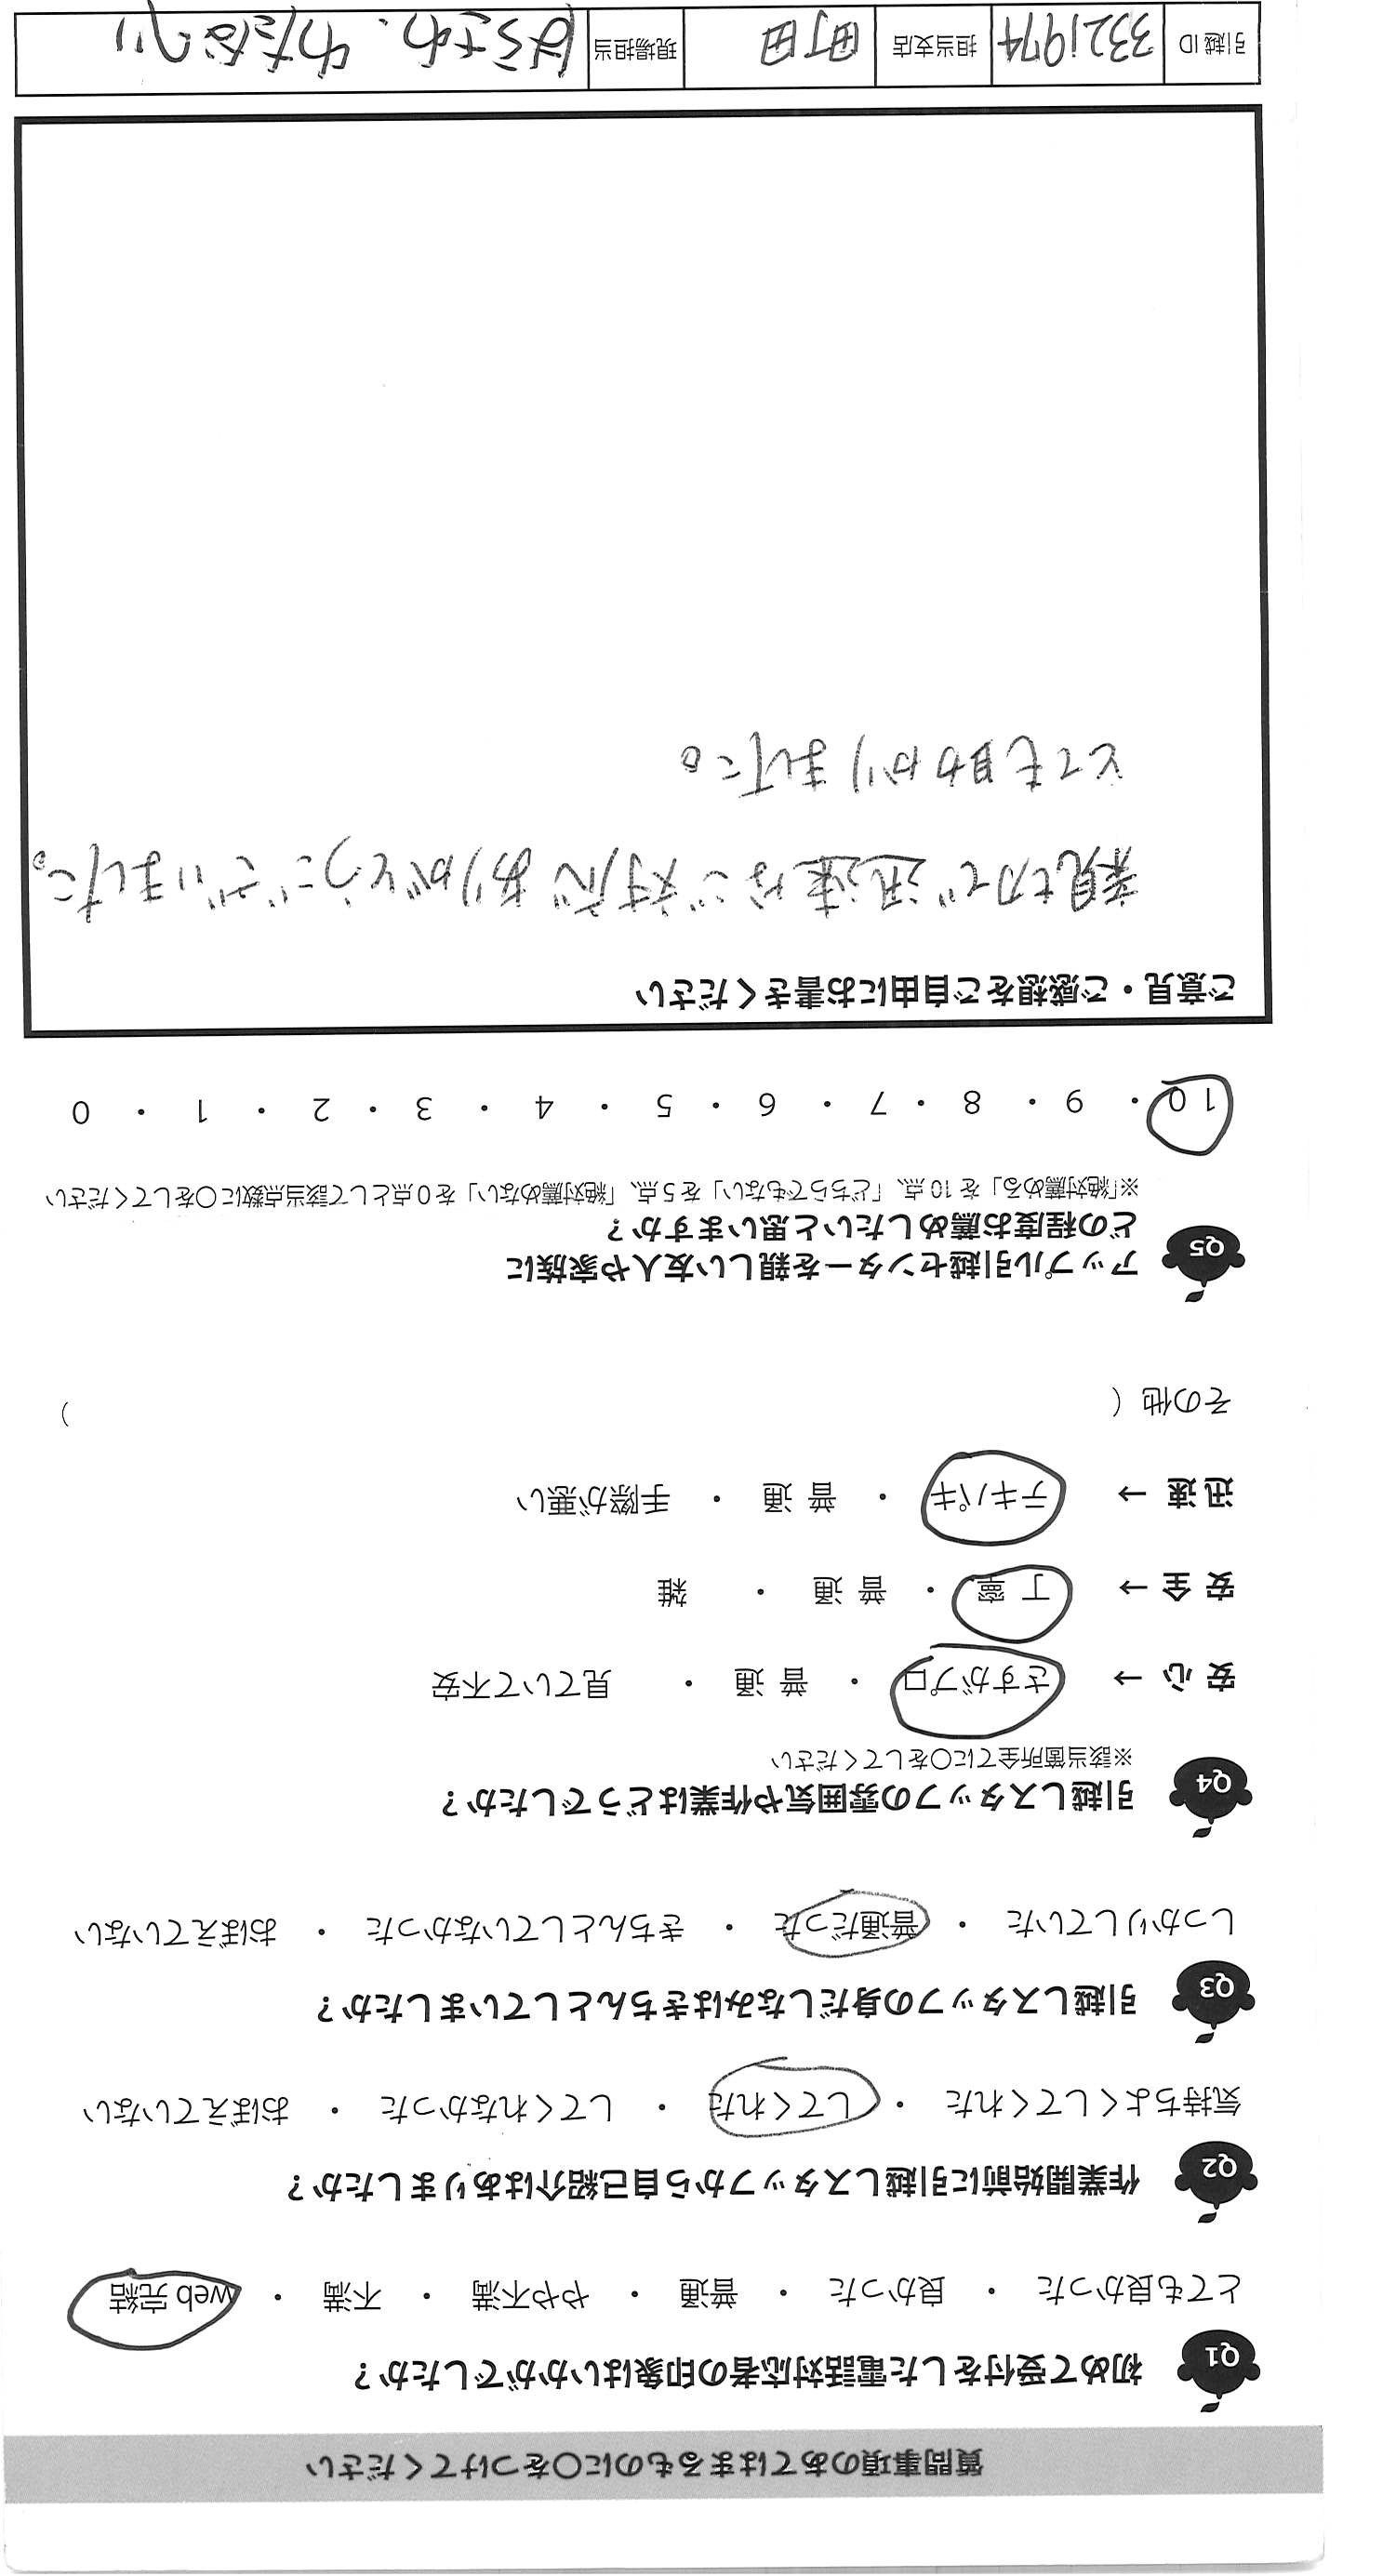 質問事項のあてはまるものに〇をつけてください
Q1 初めて受付をした電話対応者の印象はいかがでしたか？
とても良かった ・ 良かった ・ 普通 ・ やや不満 ・ 不満 ・ web 完結
Q2 作業開始前に引越しスタッフから自己紹介はありましたか？
気持ちよくしてくれた ・ してくれた ・ してくれなかった ・ おぼえていない
Q3 引越しスタッフの身だしなみはきちんとしていましたか？
しっかりしていた ・ 普通だった ・ きちんとしていなかった ・ おぼえていない
Q4 引越しスタッフの雰囲気や作業はどうでしたか？
※該当箇所全てに〇をしてください
安心 → さすがプロ ・ 普通 ・ 見ていて不安
安全 → 丁寧 ・ 普通 ・ 雑
迅速 → テキパキ ・ 普通 ・ 手際が悪い
その他（ ）
Q5 アップル引越センターを親しい友人や家族に
どの程度お薦めしたいと思いますか？
※「絶対薦める」を 10 点、「どちらでもない」を 5 点、「絶対薦めない」を 0 点として該当点数に〇をしてください
10 ・ 9 ・ 8 ・ 7 ・ 6 ・ 5 ・ 4 ・ 3 ・ 2 ・ 1 ・ 0
ご意見・ご感想をご自由にお書きください
親切で迅速なご対応ありがとうございました。
とても助かりました。
引越 ID 3321974 担当支店 町田 現場担当 はらさわ、わたなべ